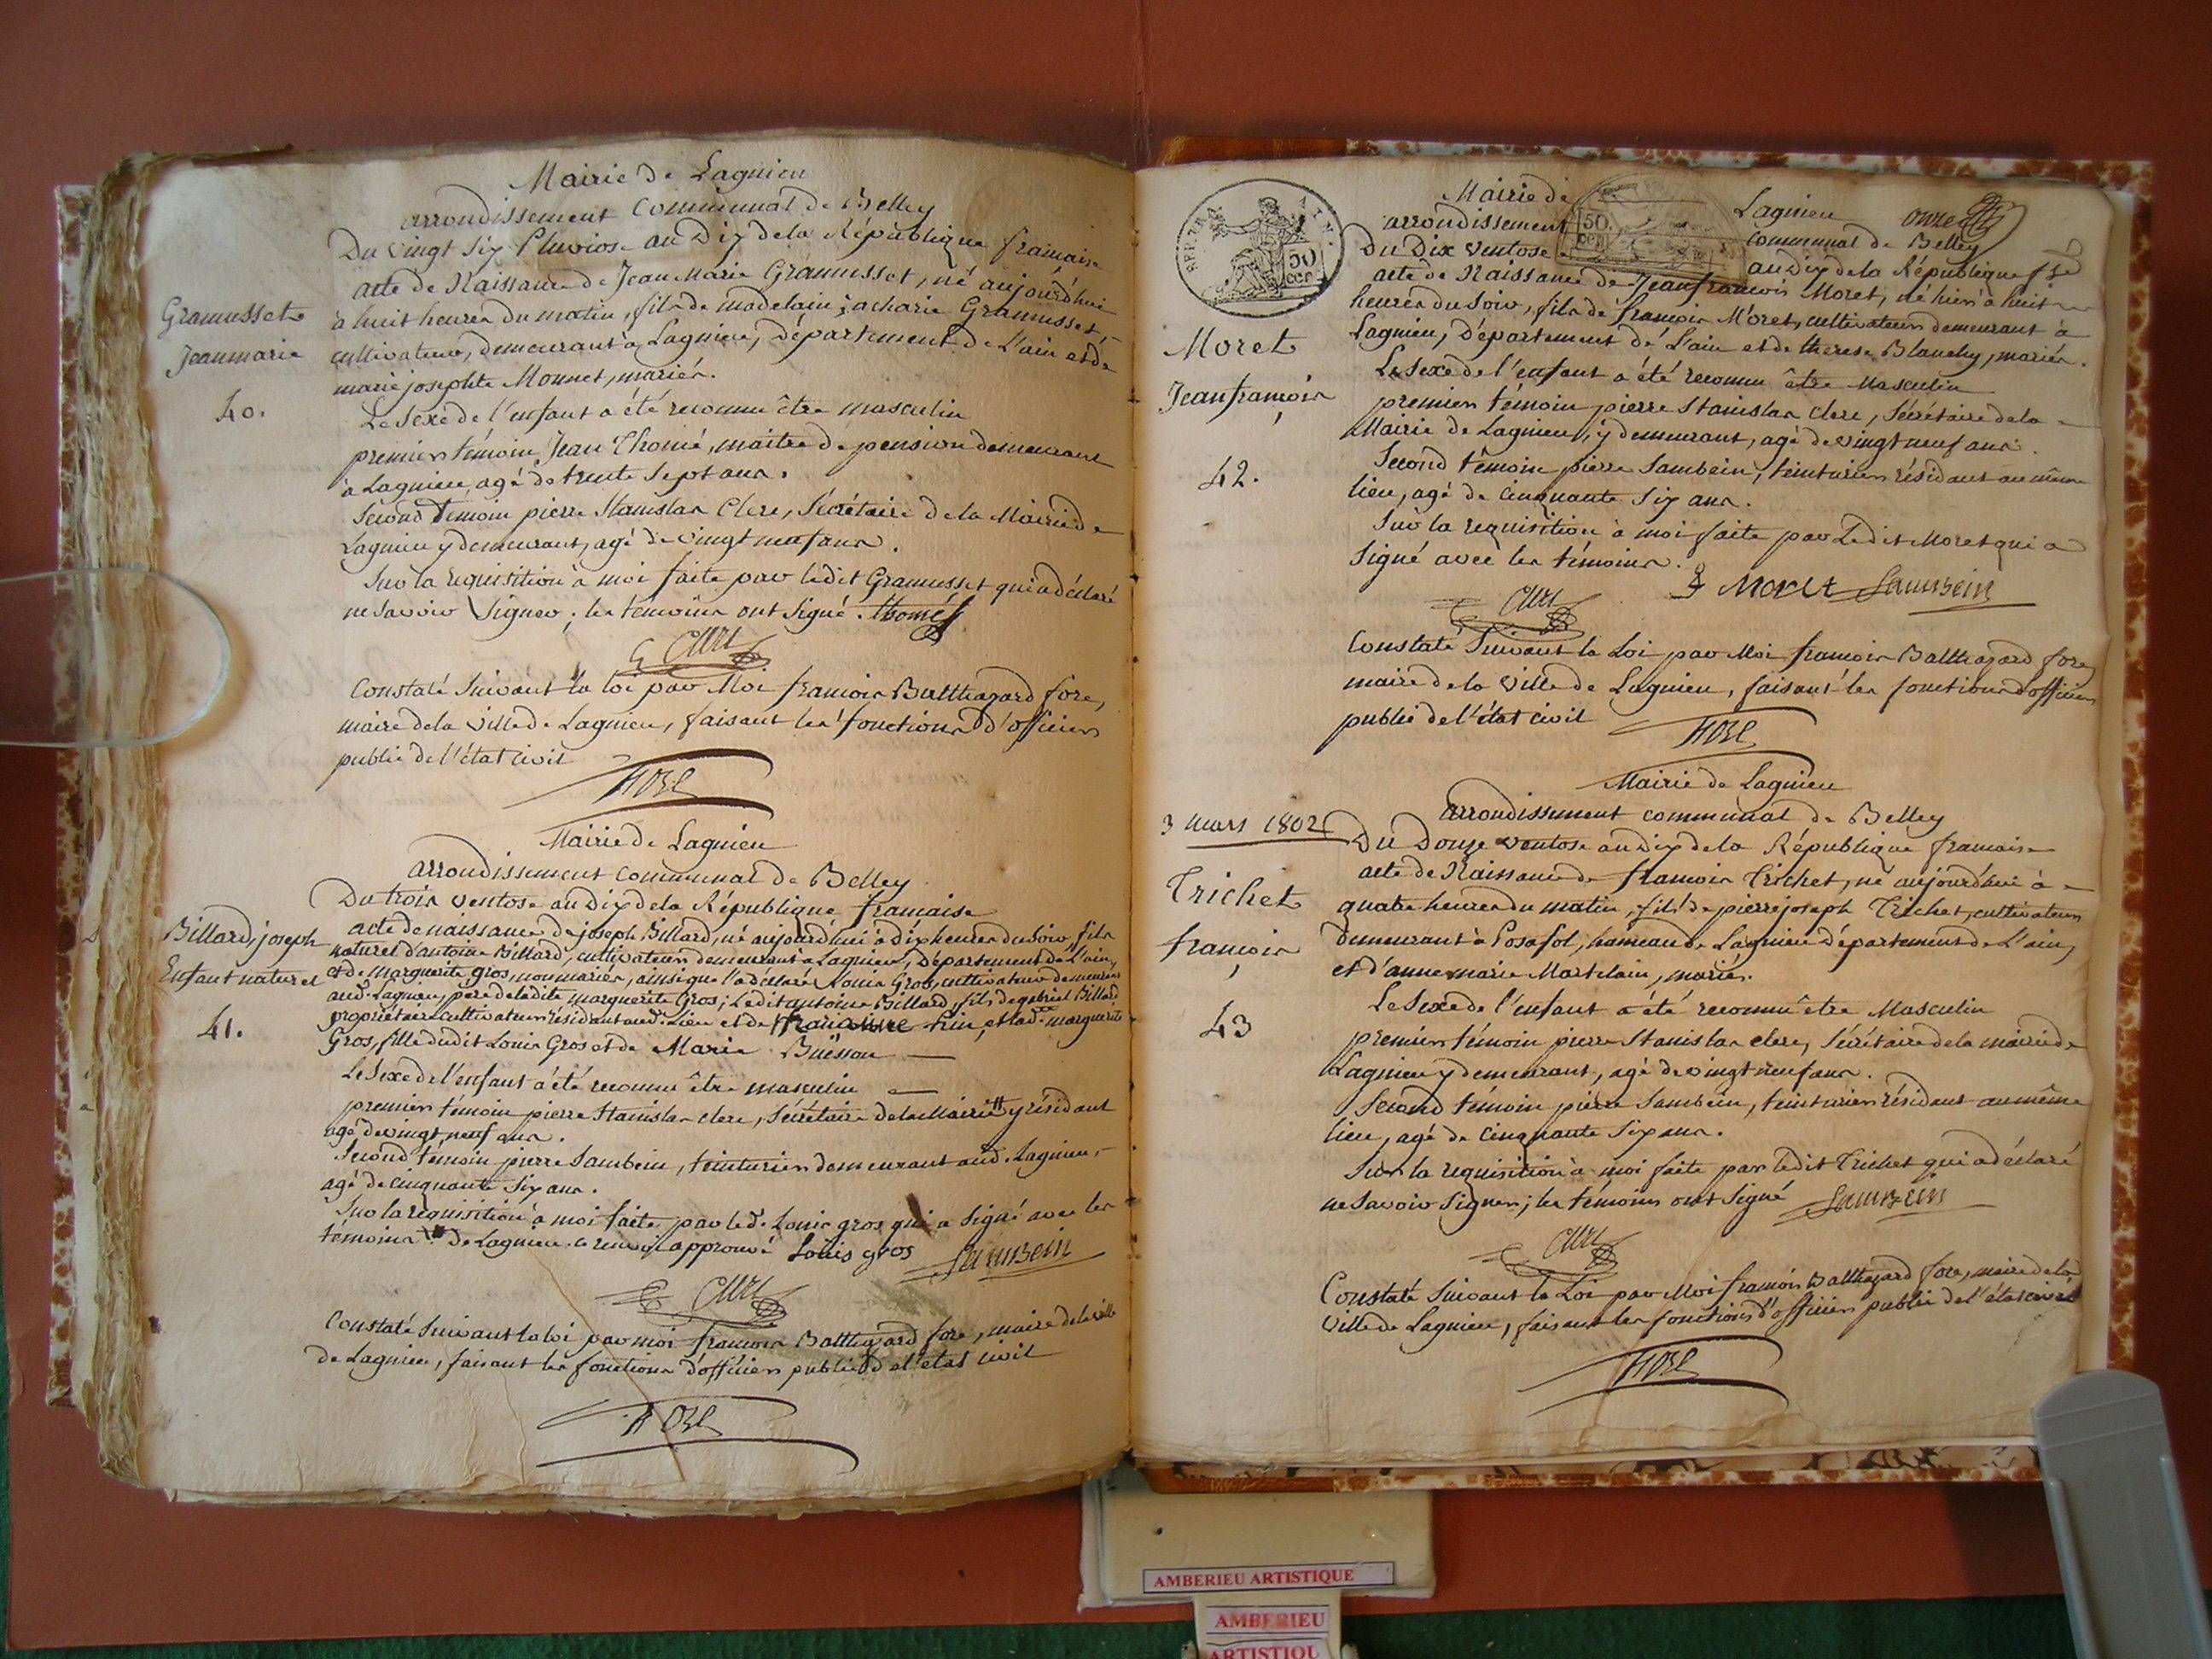 Mairie de Lagnieu
arrondissement Communal de Belley
Du vingt Six Pluviose an Dix de la République francaise
acte de Naissance de Jean Marie Gramusset, né aujourd'hui
à huit heures du matin, fils de madelain jacharie Gramusset
cultivateur, demeurant à Lagnieu, Département de L'ain et de
marie josephte Monnet, mariés.
Gramusset
Jeanmarie
40.
Le Sexe de l'enfant a été reconnu être masculin
premier témoin Jean Thomé, maitre de pension demeurant
à Lagnieu, agé de trente Sept ans.
Second témoin pierre Stanislas Clerc, Sécrétaire de la Mairie de
Lagnieu y demeurant, agé de vingt neuf ans.
Sur la requisition à moi faite par ledit Gramusset qui a déclaré
ne Savoir Signer ; les témoins ont Signé. Thomé
Constaté Suivant la loi par Moi francois Balthazard fore,
maire de la ville de Lagnieu, faisant les fonctions d'officier
public de l'état civil
fore
Mairie de Lagnieu
arrondissement communal de Belley
Du trois ventose an Dix de la République francaise
acte de naissance de joseph Billard, né aujourd'hui à dix heures du Soir, fils
naturel d'antoine Billard, cultivateur demeurant à Lagnieu, Département de L'ain,
et de Marguerite gros, non mariés, ainsi que l'a déclaré Louis Gros, cultivateur demeurant
aud. Lagnieu, père de ladite marguerite Gros ; Ledit antoine Billard, fils de gabriel Billard
propriétaire cultivateur résidant aud. Lieu et de et lad. marguerite
Gros, fille dudit Louis Gros et de Marie Buisson
Billard, joseph
Enfant naturel
41.
Le Sexe de l'enfant a été reconnu être masculin
premier témoin pierre Stanislas clerc, Sécrétaire de la Mairie y résidant
agé de vingt neuf ans.
Second témoin pierre Sambein, teinturier demeurant aud. Lagnieu,
agé de cinquante Six ans.
Sur la requisition à moi faite par led. Louis gros qui a Signé avec les
témoins. de Lagnieu. ce renvoi approuvé Louis gros Sambein
Constaté Suivant la loi par moi francois Balthazard fore, maire de la ville
de Lagnieu, faisant les fonctions d'officier public de l'état civil
fore
50
cen
Mairie de Lagnieu onze
arrondissement communal de Belley
Du Dix Ventose an Dix de la République fse
acte de Naissance de Jeanfrancois Moret, né hier à huit
heures du Soir, fils de francois Moret, cultivateur demeurant à
Lagnieu, Département de L'ain et de therese Blanchy, mariés.
Moret
Jeanfrancois
42.
Le Sexe de l'enfant a été reconnu être Masculin
premier témoin pierre Stanislas clerc, Sécrétaire de la
Mairie de Lagnieu, y demeurant, agé de vingt neuf ans.
Second témoin pierre Sambein, teinturier résidant au même
lieu, agé de cinquante Six ans.
Sur la requisition à moi faite par Ledit Moret qui a
Signé avec les témoins.
Moret Sambein
Constaté Suivant la Loi par Moi francois Balthazard fore
maire de la ville de Lagnieu, faisant les fonctions d'officier
public de l'état civil
fore
Mairie de Lagnieu
arrondissement communal de Belley
3 mars 1802
Du Douze ventose an Dix de la République francaise
acte de Naissance de francois Trichet, né aujourd'hui à
quatre heures du matin, fils de pierre joseph Trichet, cultivateur
demeurant à Posafol, hameau de Lagnieu Département de L'ain,
et d'anne marie Martelain, mariés.
Trichet
francois
43
Le Sexe de l'enfant a été reconnu etre Masculin
premier témoin pierre Stanislas clerc, Sécrétaire de la mairie de
Lagnieu y demeurant, agé de vingt neuf ans.
Second témoin pierre Sambein, teinturier résidant au même
lieu, agé de cinquante Six ans.
Sur la requisition à moi faite par ledit Trichet qui a déclaré
ne Savoir Signer ; les témoins ont Signé Sambein
Constaté Suivant la Loi par Moi francois Balthazard fore, maire de la
ville de Lagnieu, faisant les fonctions d'officier public de l'état civil
fore
AMBERIEU ARTISTIQUE
AMBERIEU